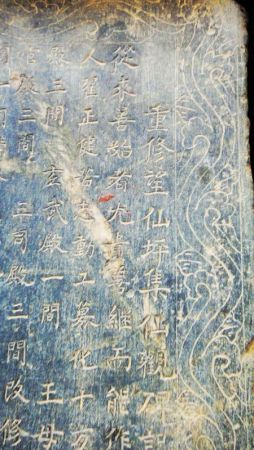 重修望仙坪集仙觀碑記
從來善始者尤善繼而能作
人正健苦志動工募化十方
殿三間 玄武殿一間 王母
官殿三間 三司殿三間改修